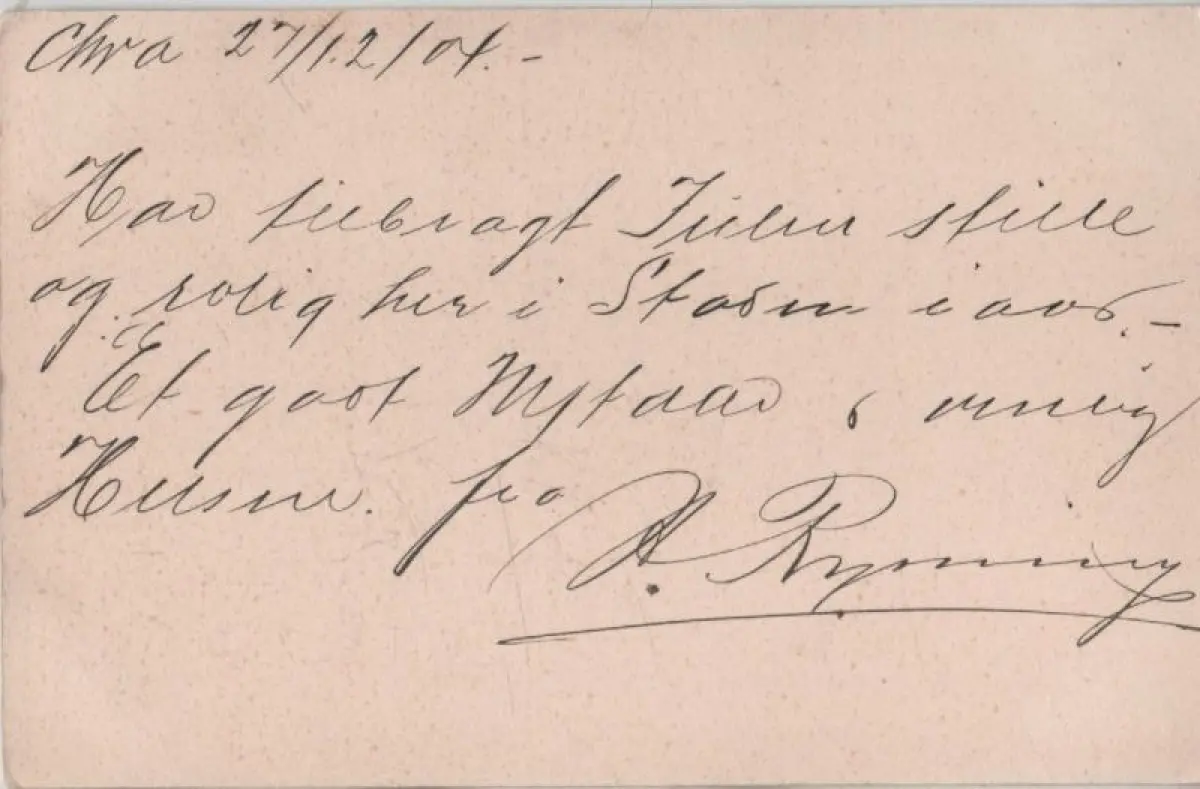 Chra 27/12/04. -
Har tilbragt Julen stille
og rolig her i Staden iaar. -
Et godt Nytaar & venlig
Hilsen. fra
A. Rynning